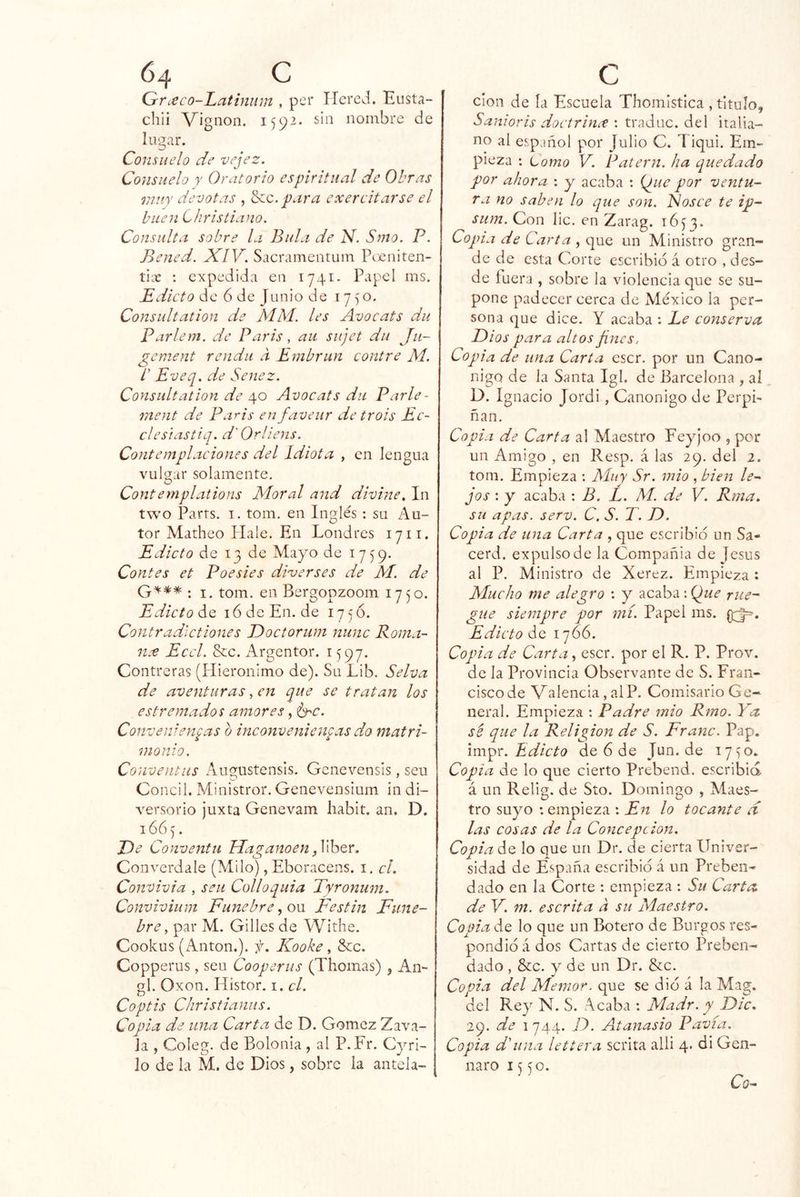 64 C
Græco-Latinum , per Hered. Eusta-
chii Vignon. 1592. sin nombre de
lugar.
Consuelo de vejez.
Consuelo y Oratorio espiritual de Obras
muy devotas , &c. para exercitarse el
buen Christiano.
Consulta sobre la Bula de N. Smo. P.
Bened. XIV. Sacramentum Pœniten-
tiæ : expedida en 1741. Papel ms.
Edicto de 6 de Junio de 1750.
Consultation de MM. les Avocats du
Parlem. de Paris, au sujet du Ju-
gement rendu à Embrun contre M.
l' Eveq. de Senez.
Consultation de 40 Avocats du Parle-
ment de Paris en faveur de trois Ec-
clesiastiq. d'Orliens.
Contemplaciones del Idiota , en lengua
vulgar solamente.
Contemplations Moral and divine. In
two Parts. 1. tom. en Inglés : su Au-
tor Matheo Hale. En Londres 1711.
Edicto de 13 de Mayo de 1759.
Contes et Poesies diverses de M. de
G*** : 1. tom. en Bergopzoom 1750.
Edicto de 16 de En. de 1756.
Contradictiones Doctorum nunc Roma-
næ Eccl. &c. Argentor. 1597.
Contreras (Hieronimo de). Su Lib. Selva
de aventuras, en que se tratan los
estremados amores, &c.
Convenienças ò inconvenienças do matri-
monio.
Conventus Augustensis. Genevensis, seu
Concil. Ministror. Genevensium in di-
versorio juxta Genevam habit. an. D.
1665.
De Conventu Haganoen, liber.
Converdale (Milo), Eboracens. 1. cl.
Convivia , seu Colloquia Tyronum.
Convivium Funebre, ou Festin Fune-
bre, par M. Gilles de Withe.
Cookus (Anton.). ỳ. Kooke, &c.
Copperus, seu Cooperus (Thomas) , An-
gl. Oxon. Histor. 1. cl.
Coptis Christianus.
Copia de una Carta de D. Gomez Zava-
la , Coleg. de Bolonia, al P. Fr. Cyri-
lo de la M. de Dios, sobre la antela-
C
cion de la Escuela Thomistica , titulo,
Sanioris doctrinæ : traduc. del italia-
no al español por Julio C. Tiqui. Em-
pieza : Como V. Patern. ha quedado
por ahora : y acaba : Que por ventu-
ra no saben lo que son. Nosce te ip-
sum. Con lic. en Zarag. 1653.
Copia de Carta , que un Ministro gran-
de de esta Corte escribió á otro , des-
de fuera , sobre la violencia que se su-
pone padecer cerca de México la per-
sona que dice. Y acaba : Le conserva
Dios para altos fines.
Copia de una Carta escr. por un Cano-
nigo de la Santa Igl. de Barcelona , al
D. Ignacio Jordi , Canonigo de Perpi-
ñan.
Copia de Carta al Maestro Feyjoo , por
un Amigo , en Resp. á las 29. del 2.
tom. Empieza : Muy Sr. mio , bien le-
jos : y acaba : B. L. M. de V. Rma.
su apas. serv. C. S. T. D.
Copia de una Carta , que escribió un Sa-
cerd. expulso de la Compañia de Jesus
al P. Ministro de Xerez. Empieza :
Mucho me alegro : y acaba : Que rue-
gue siempre por mí. Papel ms. ☞.
Edicto de 1766.
Copia de Carta, escr. por el R. P. Prov.
de la Provincia Observante de S. Fran-
cisco de Valencia, al P. Comisario Ge-
neral. Empieza : Padre mio Rmo. Ya
sé que la Religion de S. Franc. Pap.
impr. Edicto de 6 de Jun. de 1750.
Copia de lo que cierto Prebend. escribió
á un Relig. de Sto. Domingo , Maes-
tro suyo : empieza : En lo tocante á
las cosas de la Concepcion.
Copia de lo que un Dr. de cierta Univer-
sidad de España escribió á un Preben-
dado en la Corte : empieza : Su Carta
de V. m. escrita à su Maestro.
Copia de lo que un Botero de Burgos res-
pondió á dos Cartas de cierto Preben-
dado , &c. y de un Dr. &c.
Copia del Memor. que se dió á la Mag.
del Rey N. S. Acaba : Madr. y Dic.
29. de 1744. D. Atanasio Pavía.
Copia d'una lettera scrita alli 4. di Gen-
naro 1550.
Co-